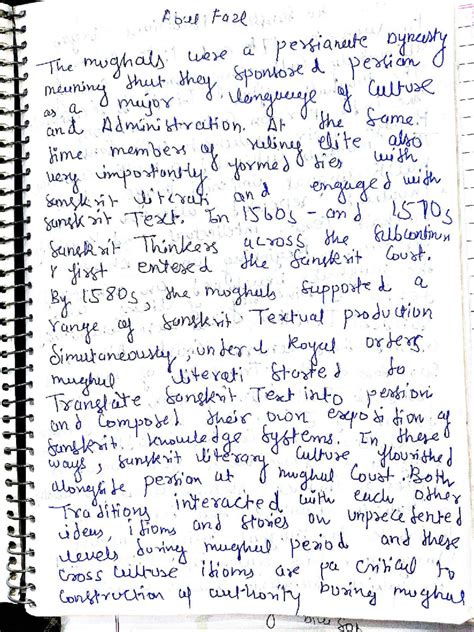 Abul Fazl
The mughals were a persianate Dynasty
meaning that they sponsored persian
as a major language of Culture
and Administration. At the Same
time members of ruling elite also
very importantly formed ties with
sanskrit literati and engaged with
sanskrit Text. In 1560s - and 1570s
Sanskrit Thinkers across the Subcontinn
first entered the Sanskrit Court.
By 1580s, the mughals supported a
range of Sanskrit Textual production
Simultaneously, under Royal orders
mughul literati started to
Translate Sanskrit Text into persion
and Composed their own exposition of
Sanskrit knowledge Systems. In these
ways, sanskrit literary Culture flourished
alongside persion at mughul Court. Both
Traditions interacted with each other
ideas, idioms and stories on unprecented
levels during mughul period and these
Cross Culture idioms are critical to
Construction of authority During mughal